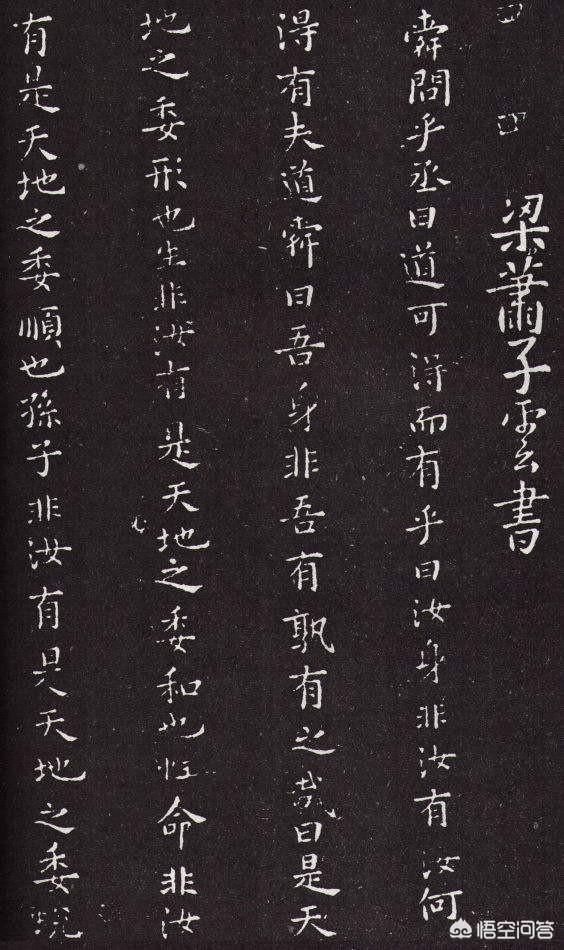 梁蕭子雲書
舜問乎丞曰道可得而有乎曰汝身非汝有汝何
得有夫道舜曰吾身非吾有孰有之哉曰是天
地之委形也生非汝有是天地之委和也性命非汝
有是天地之委順也孫子非汝有是天地之委蛻
悟空问答